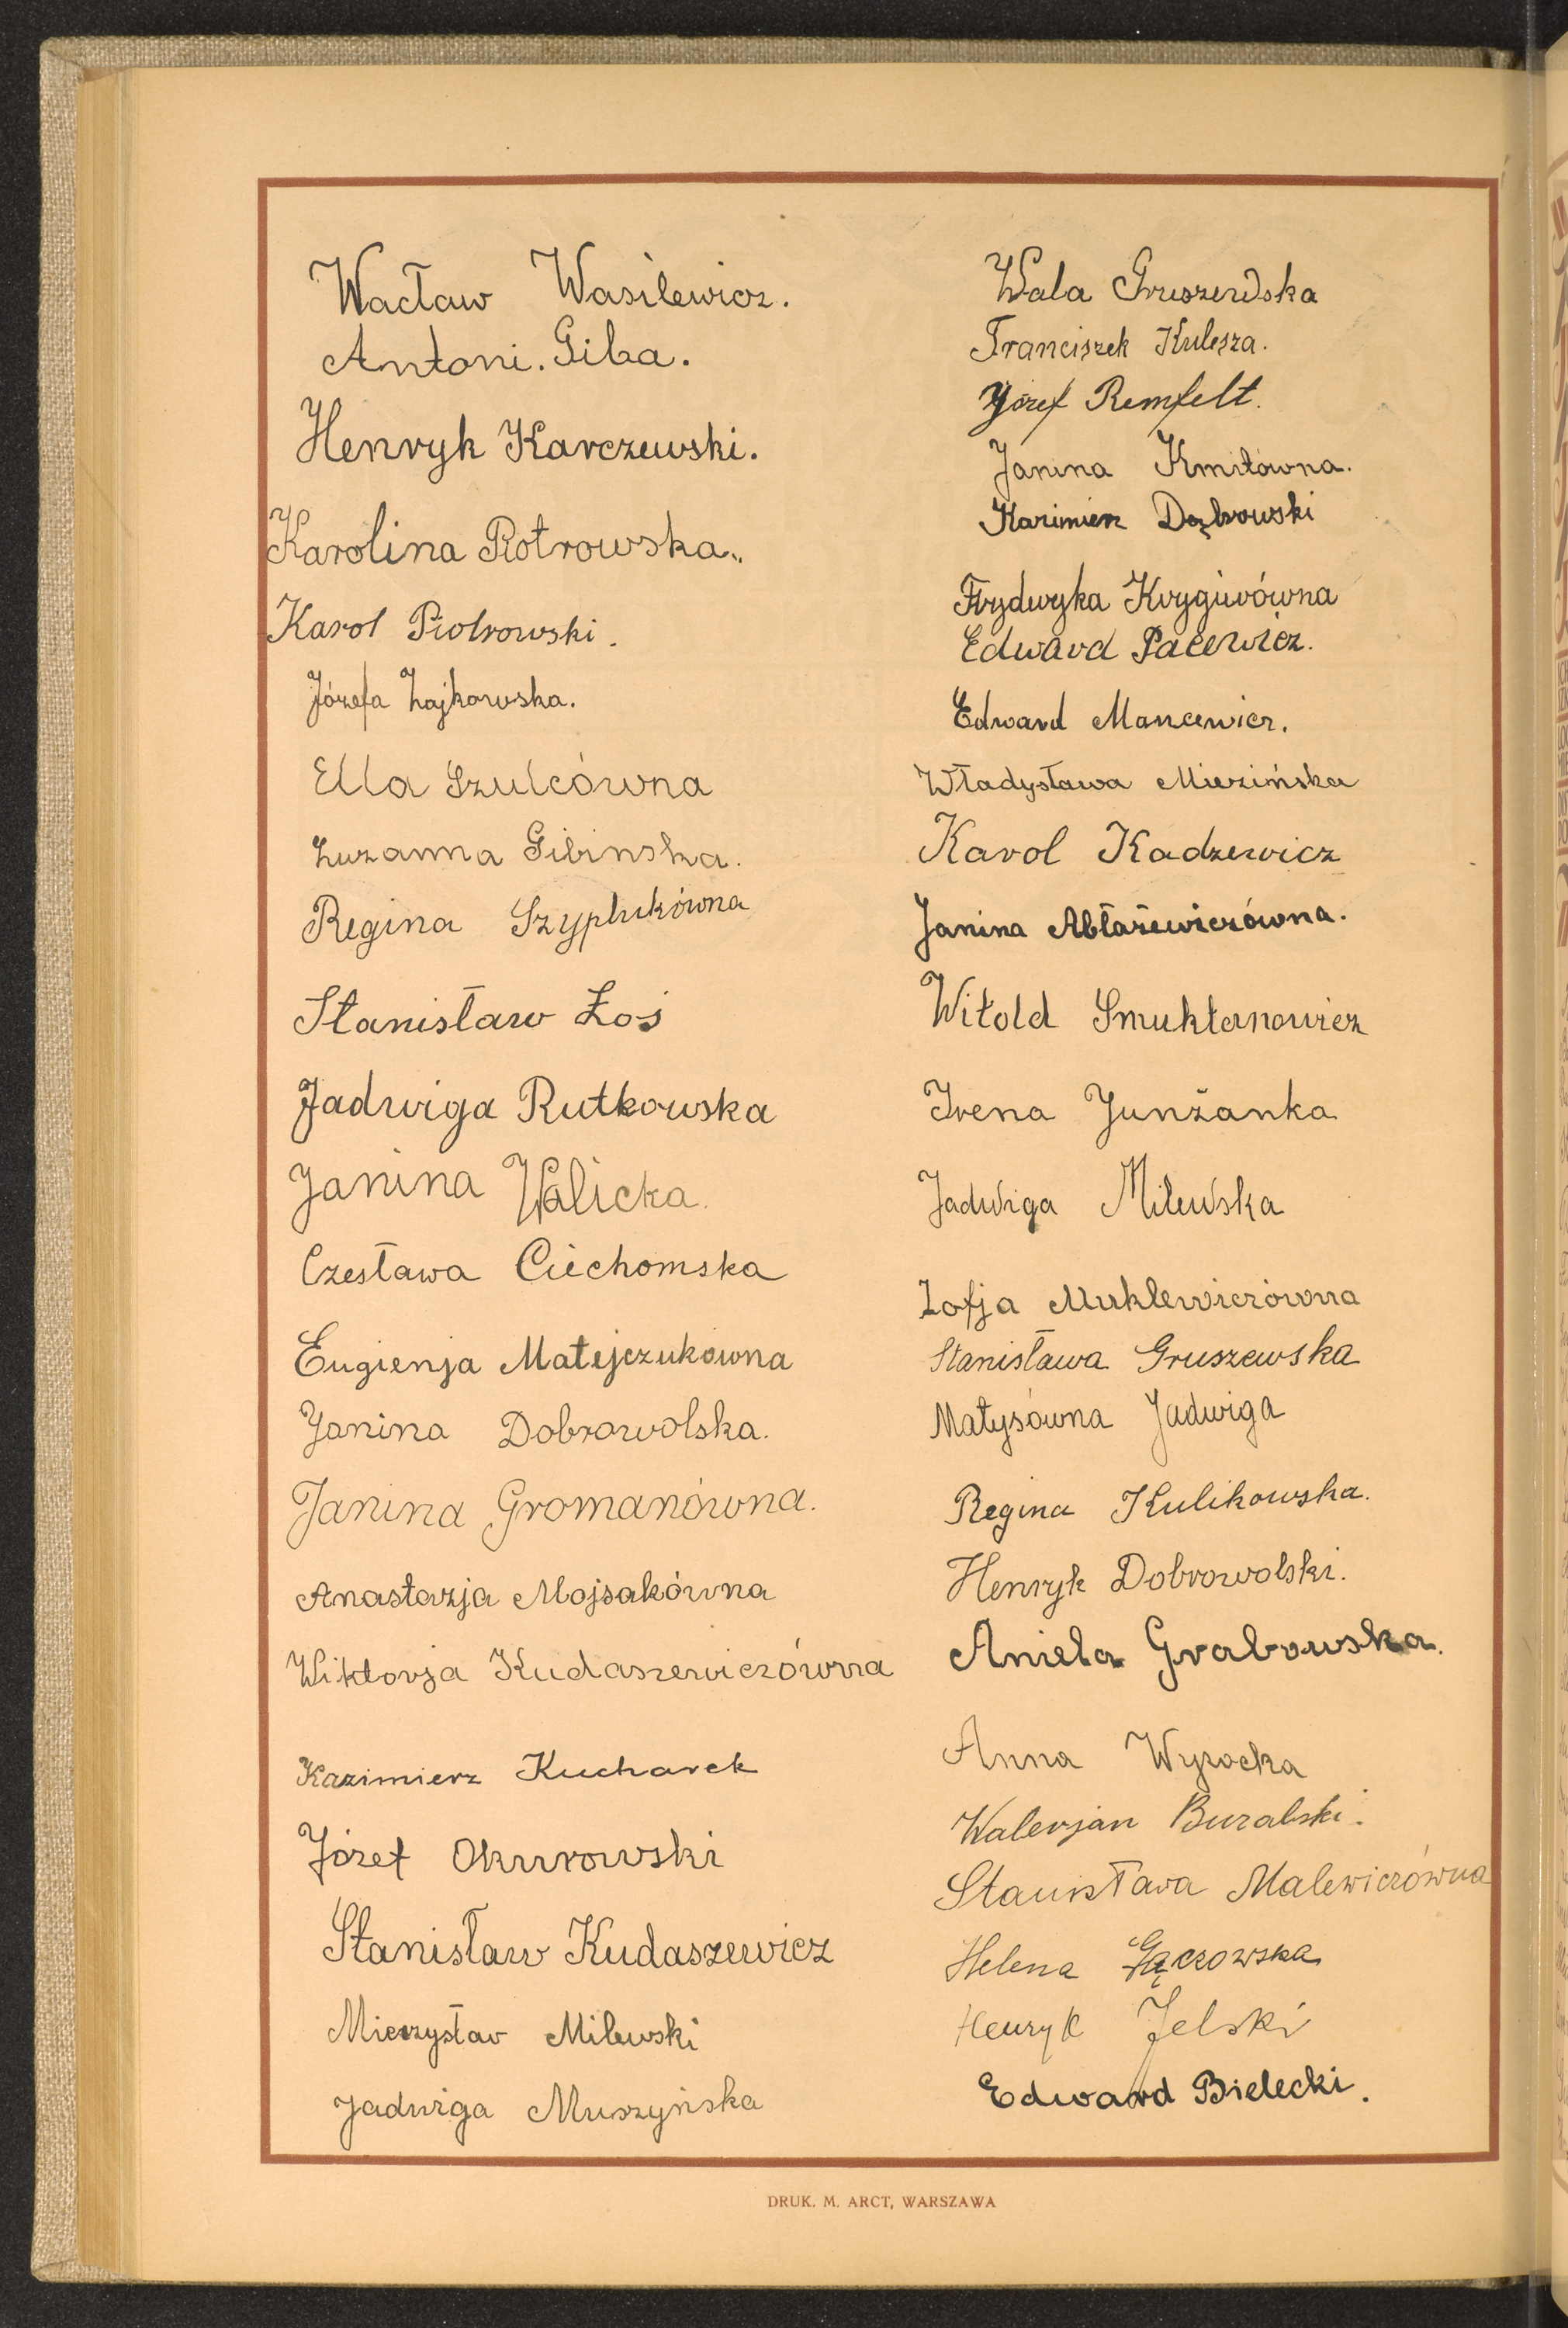 Wacław Wasilewicz.
Antoni. Giba.
Henryk Karczewski.
Karolina Piotrowska.
Karol Piotrowski.
Józefa Zajkowska.
Ella Szulcówna
Zuzanna Gibinska.
Regina Szyplukówna
Stanisław Łoś
Jadwiga Rutkowska
Janina Walicka.
Czesława Ciechomska
Eugienja Matejczukówna
Janina Dobrowolska.
Janina Gromanówna.
Anastazja Mojsakówna
Wiktorja Kudaszewiczówna
Kazimierz Kucharek
Józef Okurowski
Stanisław Kudaszewicz
Mieczysław Milewski
Jadwiga Muszyńska
Wala Gruszewska
Franciszek Kulesza.
Józef Remfelt.
Janina Kmitówna.
Kazimierz Dąbrowski
Frydwyka Krygierówna
Edward Pacewicz.
Edward Mancewicz.
Władysława Mierzińska
Karol Kadzewicz
Janina Abłażewiczówna.
Witold Smukternowicz
Irena Junżanka
Jadwiga Milewska
Zofja Muklewiczówna
Stanisława Gruszewska
Matysówna Jadwiga
Regina Kulikowska.
Henryk Dobrowolski.
Aniela Grabowska.
Anna Wysocka
Walerjan Buralski.
Stanisława Malewiczówna
Helena
Henryk Jelski
Edward Bielecki.
DRUK. M. ARCT, WARSZAWA